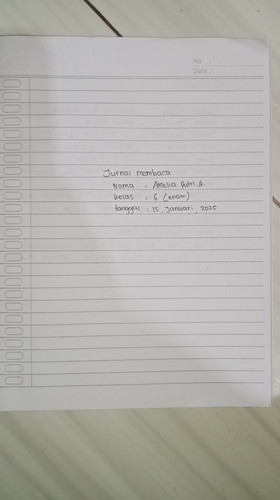 No
Date
Jurnal membaca
Nama : Amelia Putri .A.
kelas : 6 (enam)
tanggal : 15, Januari, 2025